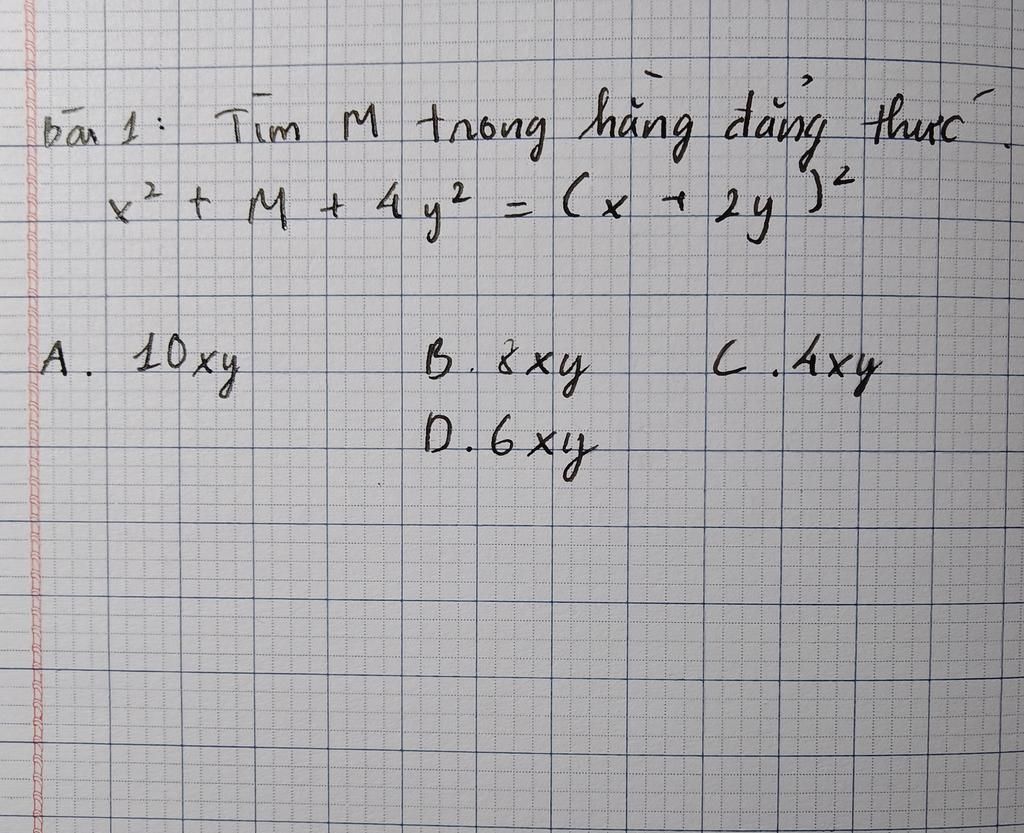 bài 1: Tìm M trong hằng đẳng thức.
x² + M + 4y² = (x + 2y)²
A. 10xy B. 8xy C. 4xy
D. 6xy